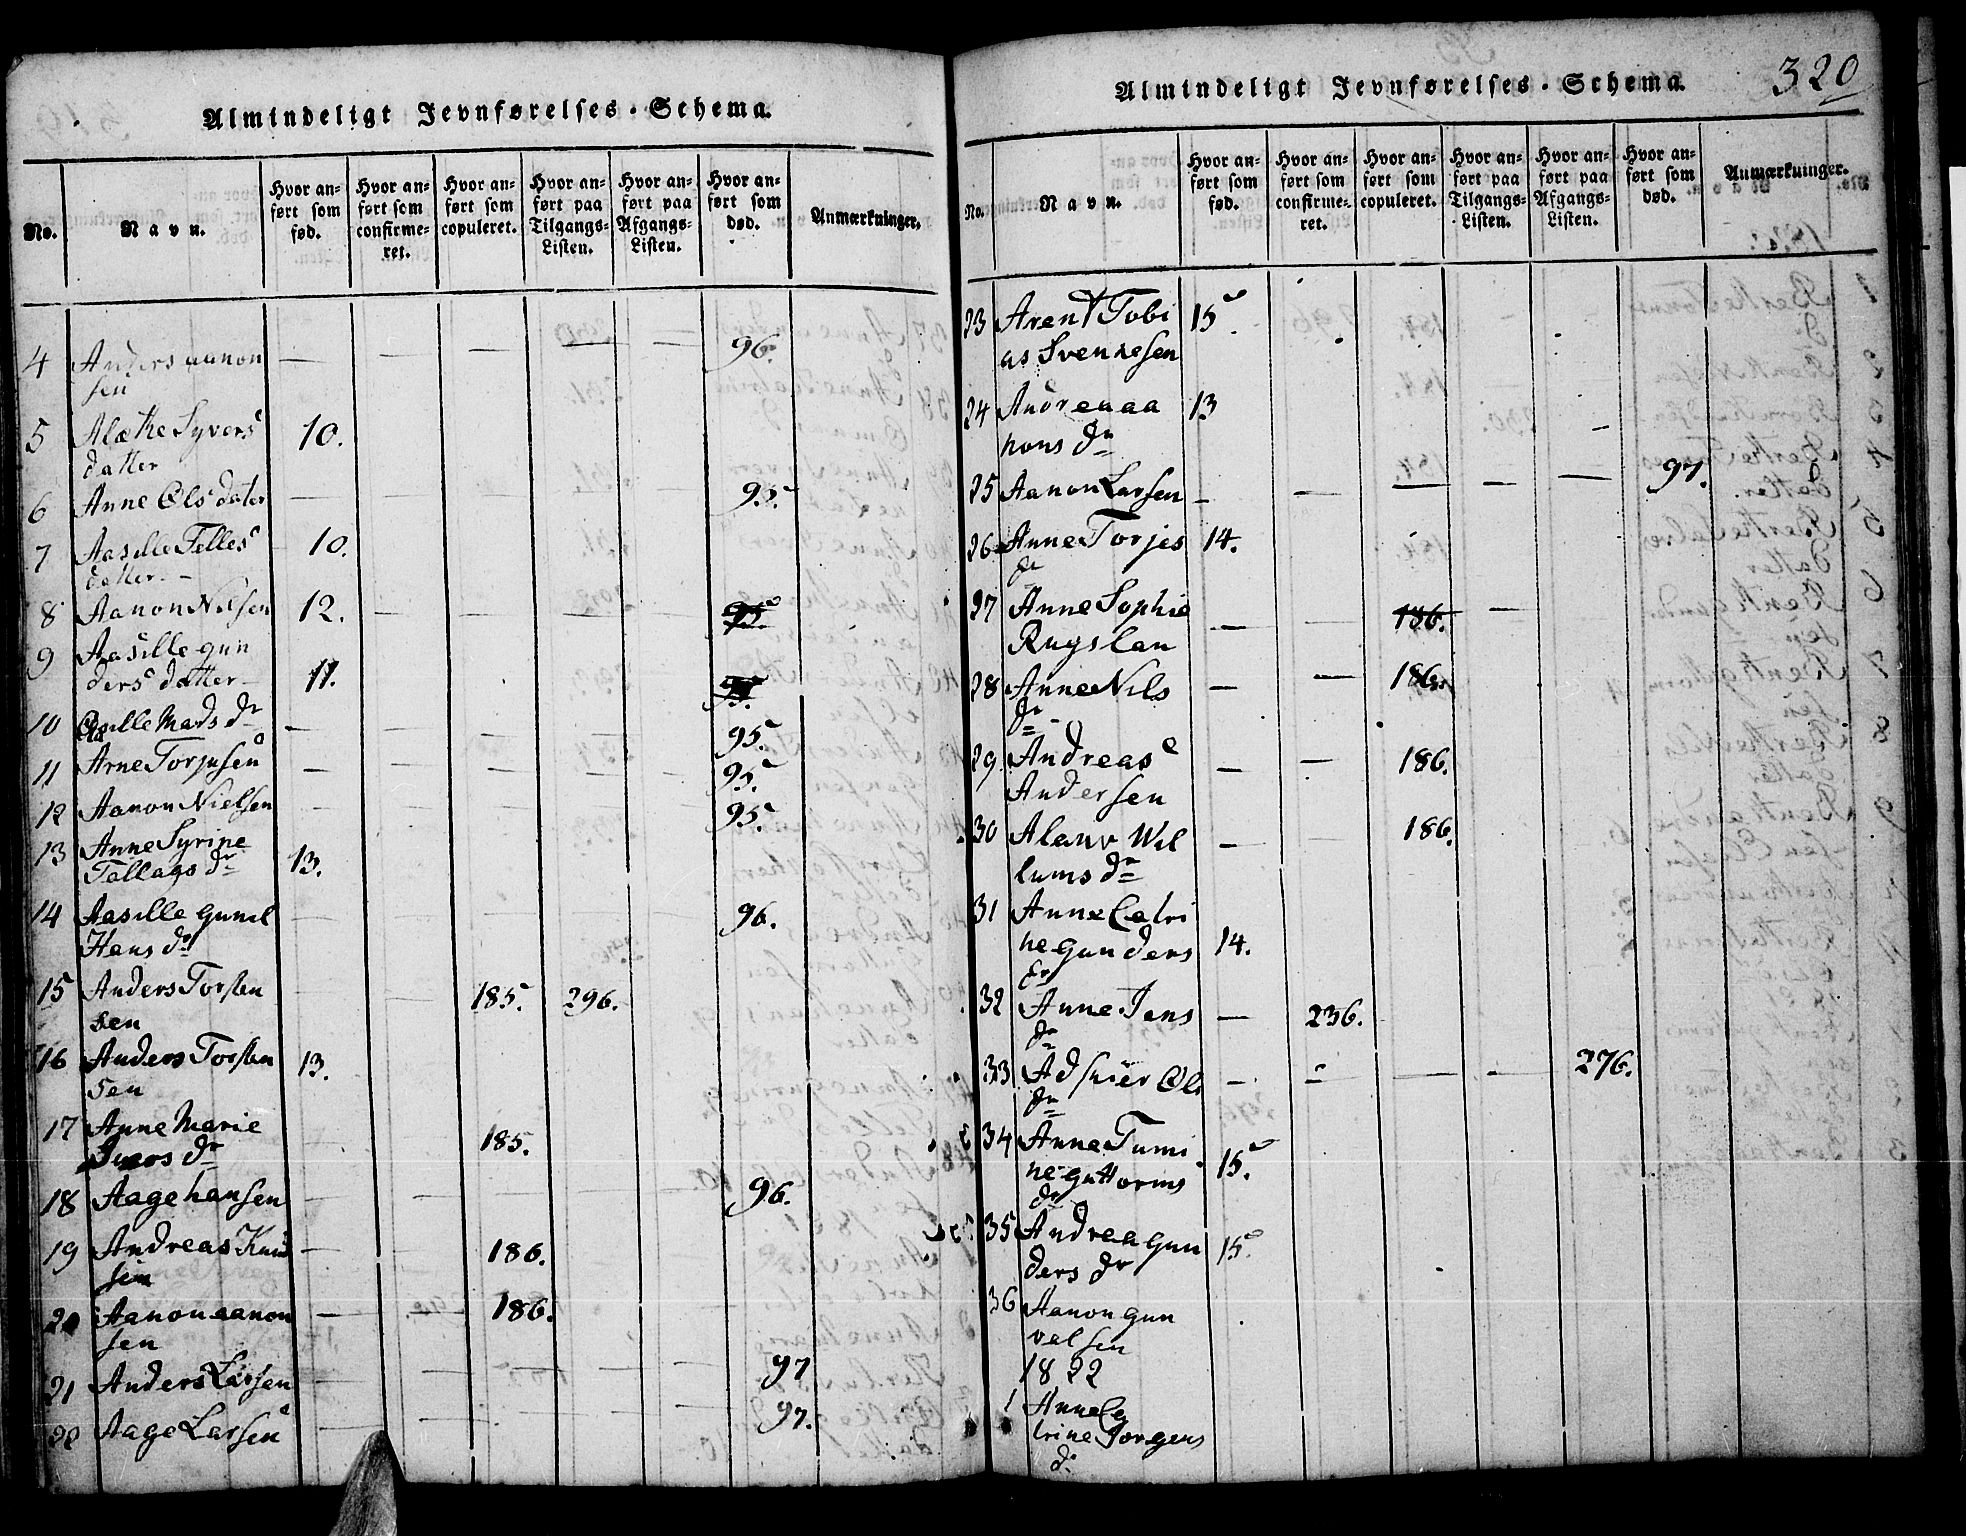 Almindeligt Jevnførelses-Schema.
No.
Navn.
Hvor anført som fød.
Hvor anført som confirmeret.
Hvor anført som copuleret.
Hvor anført paa Tilgangs-Listen.
Hvor anført paa Afgangs-Listen.
Hvor anført som død.
Anmærkninger.
4 Anders aanon — — — — — 96.
sen
5 Alethe Syvers 10.
datter
6 Anne Ols dater — 95.
7 Aasille Telles 10.
datter.
8 Aanon Nilsen 12. — — — — 95.
9 Aasille gun
ders datter 11. 95.
10 Aasille Mads dr — 95.
11 Arne Torjusen — 95.
12 Aanon Nielsen 95.
13 Anne Syrine
Tallags dr 13.
14 Aasille gunil — 96.
Hans dr
15 Anders Torsten 185. 296.
sen
16 Anders Torsten 13.
sen
17 Anne Marie 185.
Ivers dr
18 Aage hansen 96.
19 Andreas Knud — 186.
sen
20 Aanon aanon — 186.
sen
21 Anders Larsen 97
22 Aage Larsen 97.
320
Almindeligt Jevnførelses-Schema.
No.
Navn.
Hvor anført som fød.
Hvor anført som confirmeret.
Hvor anført som copuleret.
Hvor anført paa Tilgangs-Listen.
Hvor anført paa Afgangs-Listen.
Hvor anført som død.
Anmærkninger.
23 Arent Tobi 15.
as Svenkesen
24 Andrea aa 13
nons dr
25 Aanon Larsen — — — — — 97.
26 Anne Torjes 14.
dr
27 Anne Sophie — — 186. —
Rugslan
28 Anne Nils — — 186.
dr
29 Andreas — — 186.
Andersen
30 — — 186.
lums dr
31 Anne Catri
ne gunders 14.
dr
32 Anne Jens — 236.
dr
33 Ols — — — — 276.
dr
34 Anne Tumi
ne guttorms 15.
dr
35 Andrea gun 15.
ders dr
36 Aanon gun
velsen
1822
1 Anne Ca
trine Jorgens
d.